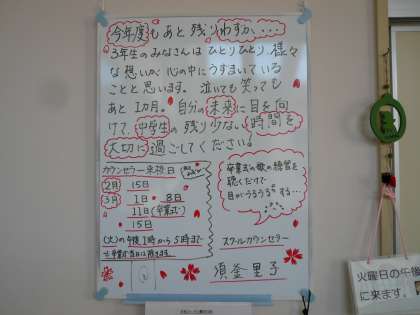 今年度もあと残りわずか・・・
3年生のみなさんはひとりひとり様々
な想いが心の中にうずまいている
ことと思います。泣いても笑っても
あと1カ月。自分の未来に目を向
けて、中学生の残り少ない時間を
大切に過ごしてください！
カウンセラー来校日
2月 15日
3月 1日 8日
11日(卒業式)
15日
(火)の午後1時から5時まで
卒業式の歌の練習を
聴くだけで
目がうるうるする…
スクールカウンセラー
須釜里子
火曜日の午後
に来ます。